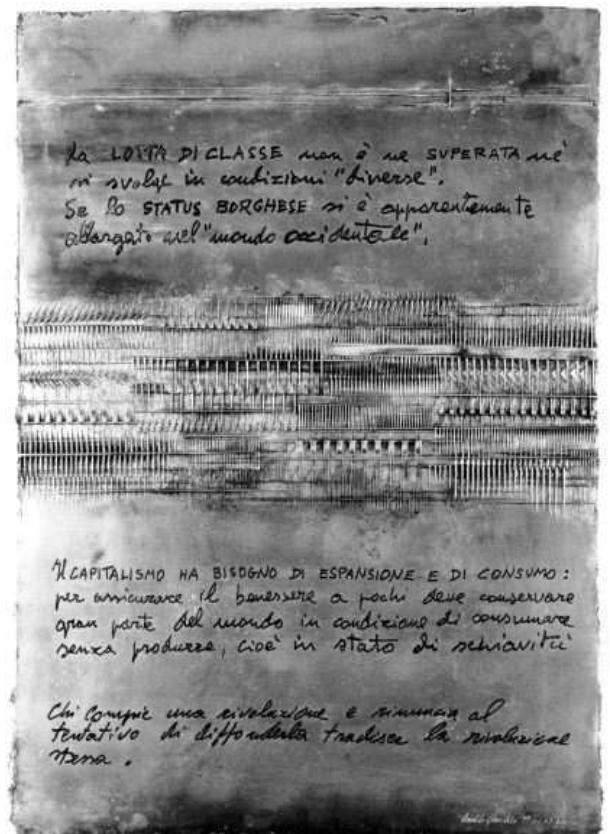 La LOTTA DI CLASSE non è ne SUPERATA nè
si svolge in condizioni "diverse".
Se lo STATUS BORGHESE si è apparentemente
allargato nel "mondo occidentale",
Il CAPITALISMO HA BISOGNO DI ESPANSIONE E DI CONSUMO :
per assicurare il benessere a pochi deve conservare
gran parte del mondo in condizione di consumare
senza produrre, cioè in stato di schiavitù
Chi compie una rivoluzione e rinuncia al
tentativo di diffonderla tradisce la rivoluzione
stessa .